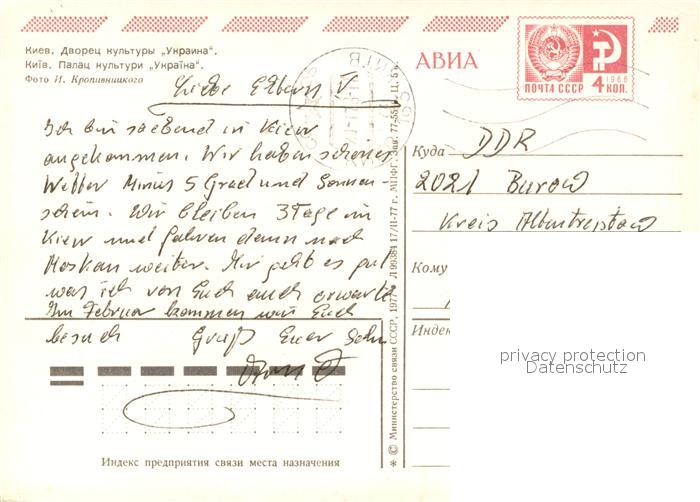 Киев. Дворец культуры „Украина".
Київ. Палац культури „Україна".
Фото И. Кропивницкого
АВИА
1966
ПОЧТА СССР 4 КОП.
Liebe Eltern
Ich bin soebend in Kiew
angekommen. Wir haben schönes
Wetter Minus 5 Grad und Sonnen
schein. Wir bleiben 3 Tage in
Kiew und fahren dann nach
Moskau weiter. Mir geht es gut
was ich von Euch auch erwarte
Im Februar kommen wir Euch
besuch Gruß Euer Sohn
Куда DDR
2021 Burow
Kreis Altentreptow
Кому
Индек
privacy protection
Datenschutz
* © Министерство связи СССР, 1977. Л 99384 17/II-77 г. МПФГ. Зак. 77-55 Ц. 5 к.
Индекс предприятия связи места назначения